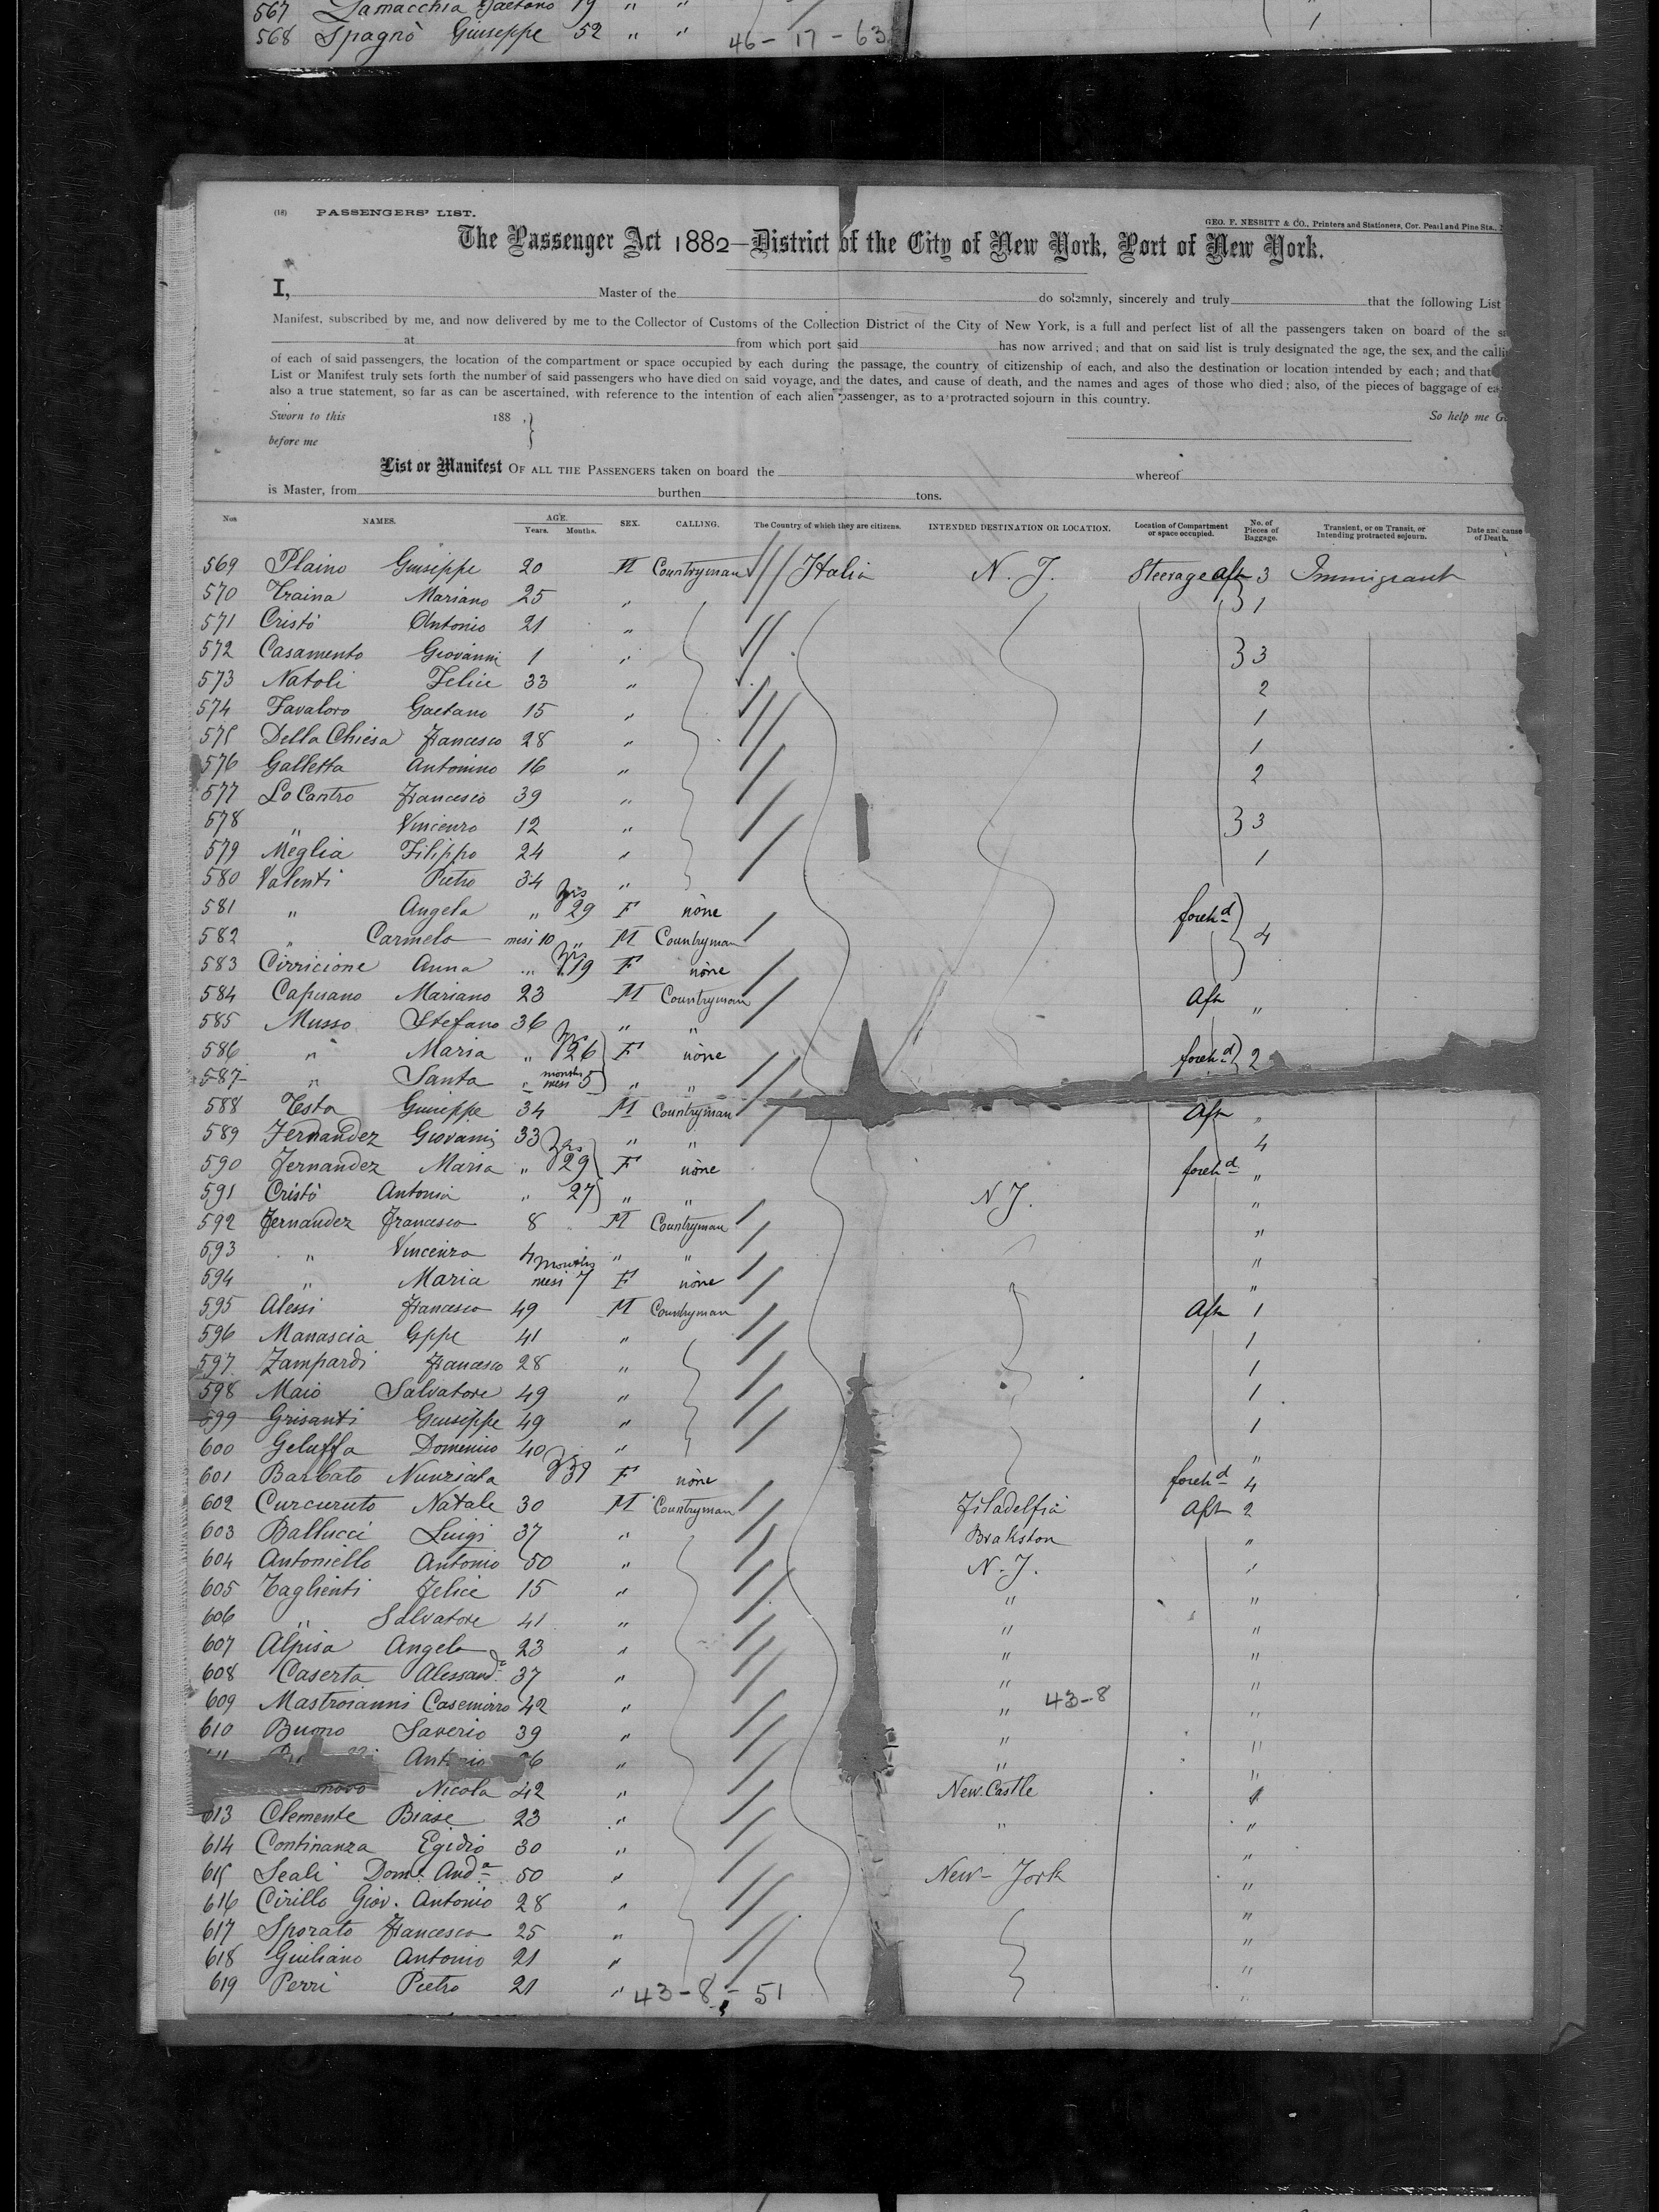 567 Lamacchia Gaetano 19 " "
568 Spagnò Giuseppe 52 " " 46 - 17 - 63 1
(18) PASSENGERS' LIST.
GEO. F. NESBITT & CO., Printers and Stationers, Cor. Pearl and Pine Sts.,
The Passenger Act 1882—District of the City of New York, Port of New York.
I, Master of the do solemnly, sincerely and truly that the following List
Manifest, subscribed by me, and now delivered by me to the Collector of Customs of the Collection District of the City of New York, is a full and perfect list of all the passengers taken on board of the sa
at from which port said has now arrived; and that on said list is truly designated the age, the sex, and the callin
of each of said passengers, the location of the compartment or space occupied by each during the passage, the country of citizenship of each, and also the destination or location intended by each; and that
List or Manifest truly sets forth the number of said passengers who have died on said voyage, and the dates, and cause of death, and the names and ages of those who died; also, of the pieces of baggage of ea
also a true statement, so far as can be ascertained, with reference to the intention of each alien passenger, as to a protracted sojourn in this country.
Sworn to this 188 , So help me G
before me
List or Manifest OF ALL THE PASSENGERS taken on board the whereof
is Master, from burthen tons.
Nos NAMES. AGE. Years. Months. SEX. CALLING. The Country of which they are citizens. INTENDED DESTINATION OR LOCATION. Location of Compartment or space occupied. No. of Pieces of Baggage. Transient, or on Transit, or Intending protracted sojourn. Date and cause of Death.
569 Plaino Giuseppe 20 M Countryman Italia N. J. Steerage aft 3 Immigrant
570 Traina Mariano 25 " 1
571 Cristò Antonio 21 "
572 Casamento Giovanni 1 " 3
573 Natoli Felice 33 " 2
574 Favaloro Gaetano 15 " 1
575 Della Chiesa Francesco 28 " 1
576 Galletta Antonino 16 " 2
577 Lo Cantro Francesco 39 "
578 " Vincenzo 12 " 3
579 Meglia Filippo 24 " 1
580 Valenti Pietro 34 "
581 " Angela " yrs 29 F none foreh.d
582 " Carmelo mesi 10 " M Countryman 4
583 Cirricione Anna " yrs 19 F none
584 Capusano Mariano 23 M Countryman Aft "
585 Musso Stefano 36 " "
586 " Maria " yrs 26 F none foreh.d 2
587 " Santa " months mesi 5 " "
588 Testa Giuseppe 34 M Countryman Aft "
589 Fernandez Giovanni 33 " " 4
590 Fernandez Maria " yrs 29 F none foreh.d "
591 Cristò Antonia " 27 " " N J. "
592 Fernandez Francesco 8 M Countryman "
593 " Vincenzo 4 " " "
594 " Maria months mesi 7 F none "
595 Alessi Francesco 49 M Countryman Aft 1
596 Manascia Gppe 41 " 1
597 Zampardi Francesco 28 " 1
598 Maio Salvatore 49 " 1
599 Grisanti Giuseppe 49 " 1
600 Geluffa Domenico 40 " "
601 Barbato Nunziata yrs 31 F none foreh.d 4
602 Curcuruto Natale 30 M Countryman Filadelfia Aft 2
603 Ballucci Luigi 37 " Brakston "
604 Antoniello Antonio 50 " N. J. "
605 Taglienti Felice 15 " " "
606 " Salvatore 41 " " "
607 Alpisa Angelo 23 " " "
608 Caserta Alessand.o 37 " " "
609 Mastroianni Casemirro 42 " " 43-8 "
610 Buono Saverio 39 " " "
Antonio 36 " " "
novo Nicola 42 " New. Castle 1
613 Clemente Biase 23 " " "
614 Continanza Egidio 30 " "
615 Scali Dom.o And.a 50 " New-York "
616 Cirillo Giov. Antonio 28 " "
617 Sporato Francesco 25 " "
618 Giuliano Antonio 21 " "
619 Perri Pietro 21 " 43 - 8 - 51 "